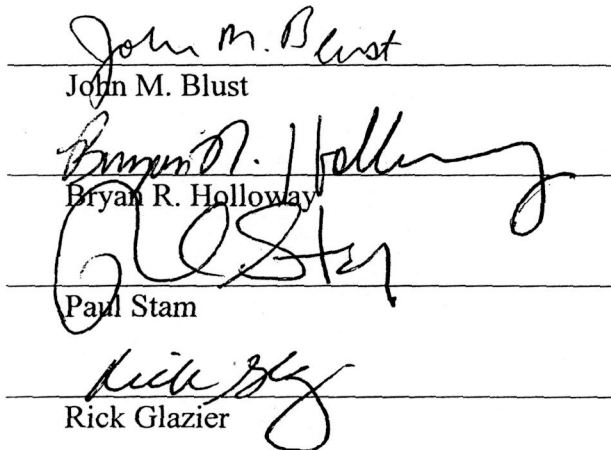 John M. Blust
John M. Blust
Bryan R. Holloway
Bryan R. Holloway
Paul Stam
Rick Glazier